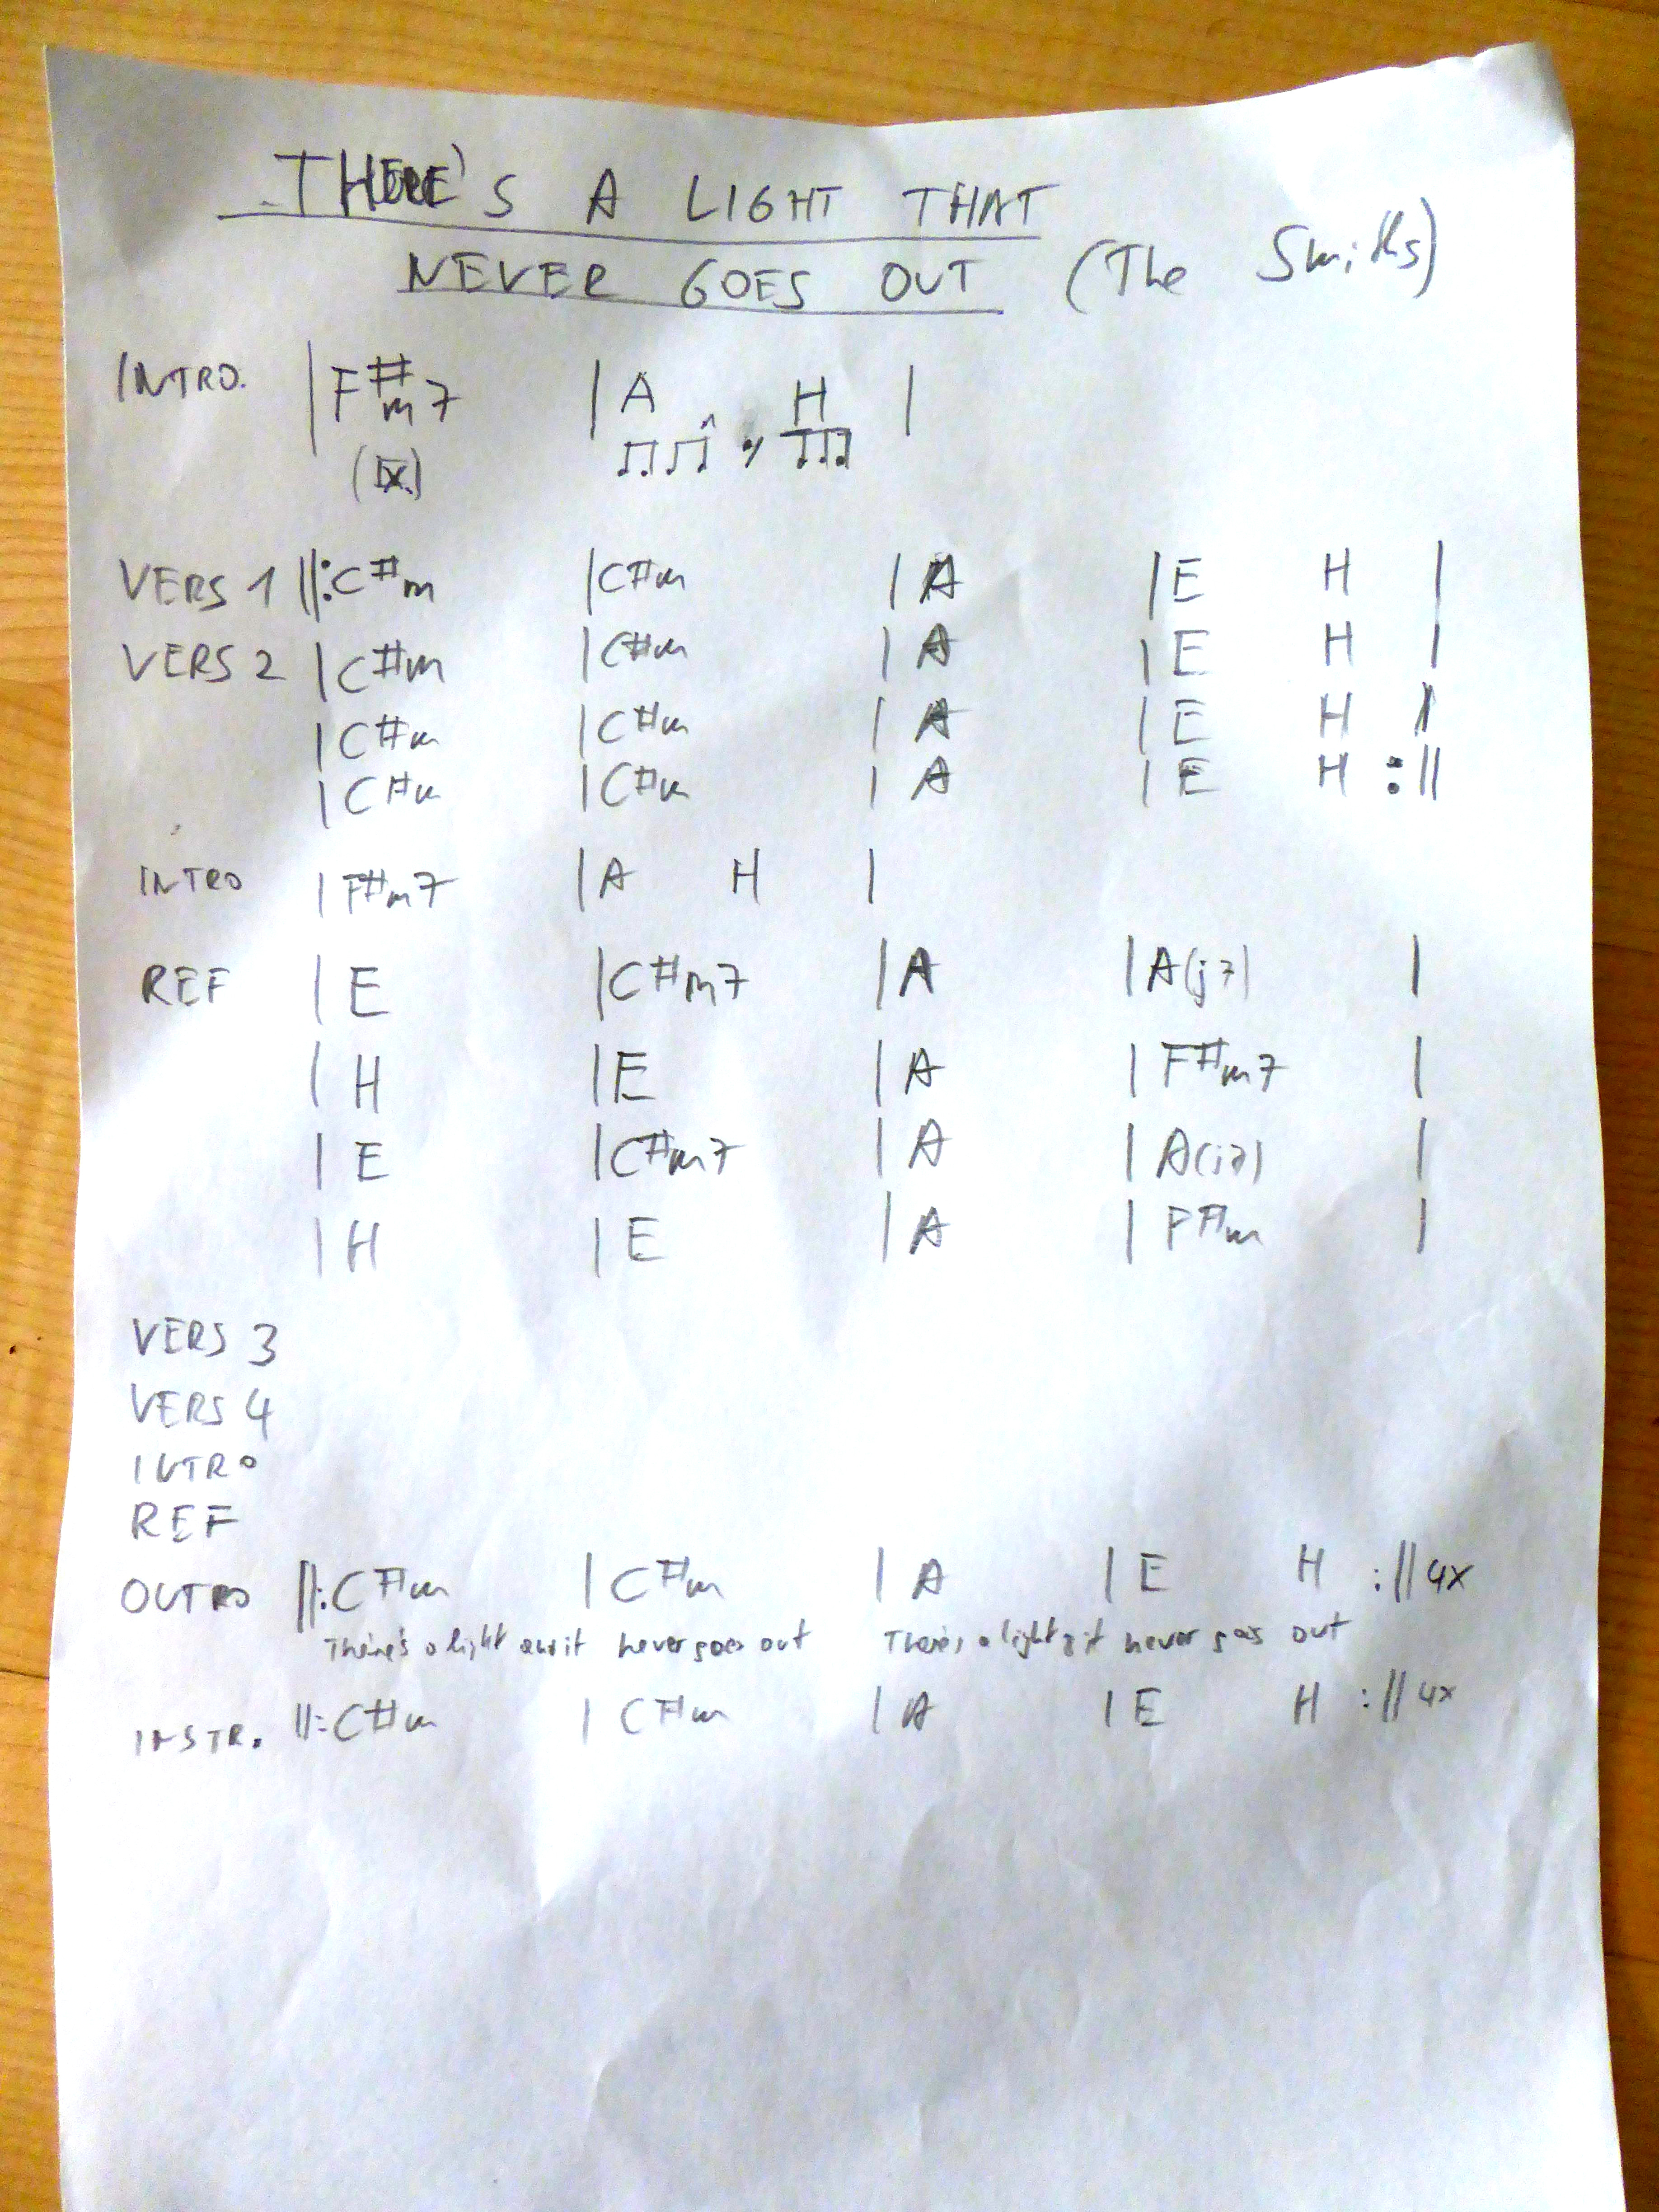 THERE'S A LIGHT THAT
NEVER GOES OUT (The Smiths)
INTRO. | F#m7 | A H |
(IX.)
VERS 1 ||: C#m | C#m | A | E H |
VERS 2 | C#m | C#m | A | E H |
| C#m | C#m | A | E H |
| C#m | C#m | A | E H :||
INTRO | F#m7 | A H |
REF | E | C#m7 | A | A(j7) |
| H | E | A | F#m7 |
| E | C#m7 | A | A(j7) |
| H | E | A | F#m |
VERS 3
VERS 4
INTRO
REF
OUTRO ||: C#m | C#m | A | E H :|| 4x
There's a light and it never goes out There's a light & it never goes out
INSTR. ||: C#m | C#m | A | E H :|| 4x